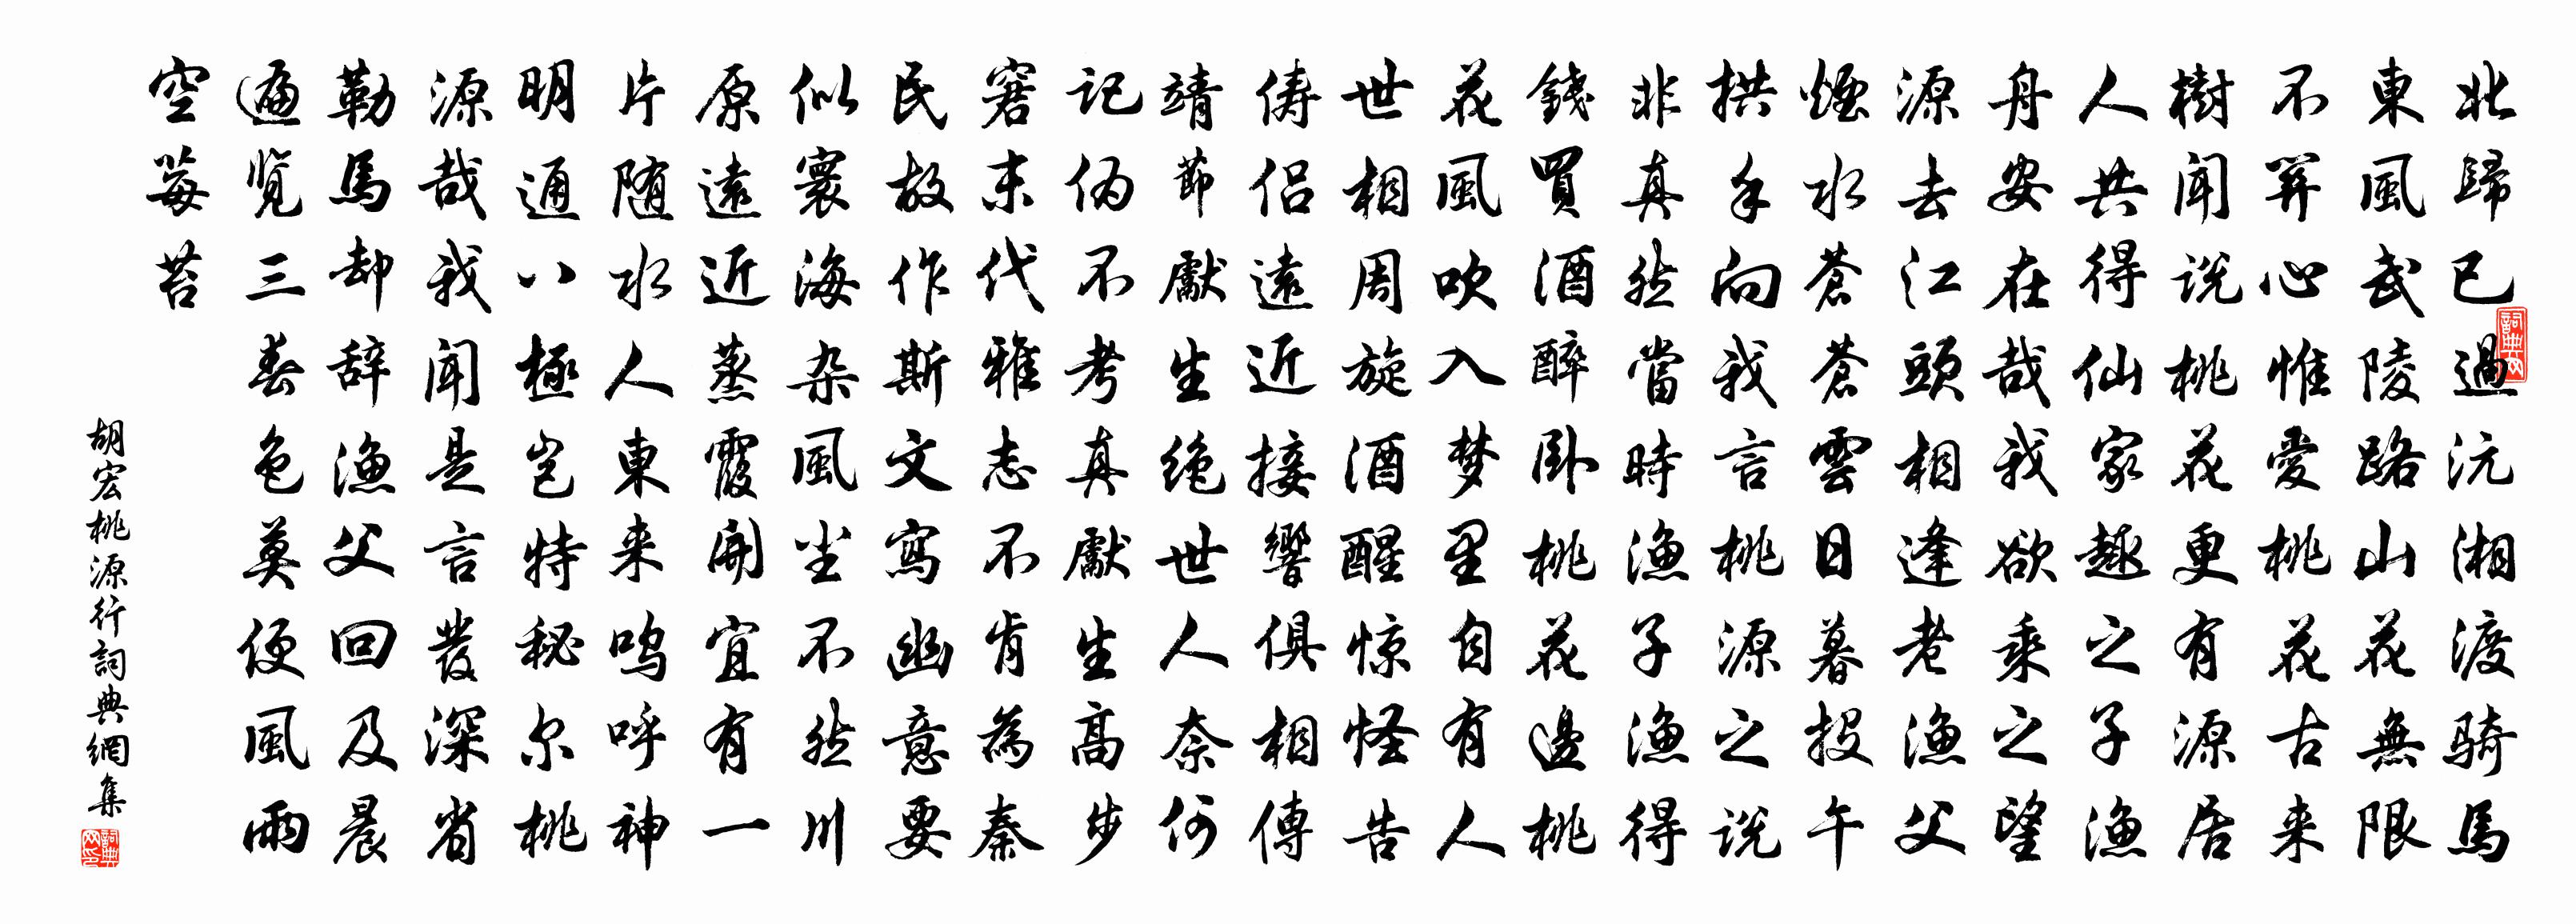 北歸已過沅湘渡骑馬
東風武陵路山花無限
不開心惟愛桃花古来
樹聞说桃花更有源居
人共得仙家趣之子漁
舟安在哉我欲乘之望
源去江頭相逢老漁父
煙水蒼蒼雲日暮投午
拱手向我言桃源之说
非真然當時漁子漁得
錢買酒醉卧桃花邊桃
花風吹入梦里自有人
世相周旋酒醒惊怪告
俦侣遠近接響俱相傳
靖節獻生绝世人奈何
记伪不考真獻生高步
窘末代雅志不肯為秦
民故作斯文寫幽意要
似寰海杂風尘不然川
原遠近蒸霞開宜有一
片随水人東来呜呼神
明通八極岂特秘尔桃
源哉我聞是言發深省
勒馬却辞漁父回及晨
遍览三春色莫便風雨
空莓苔
胡宏桃源行詞典網集
詞典网
詞典网印